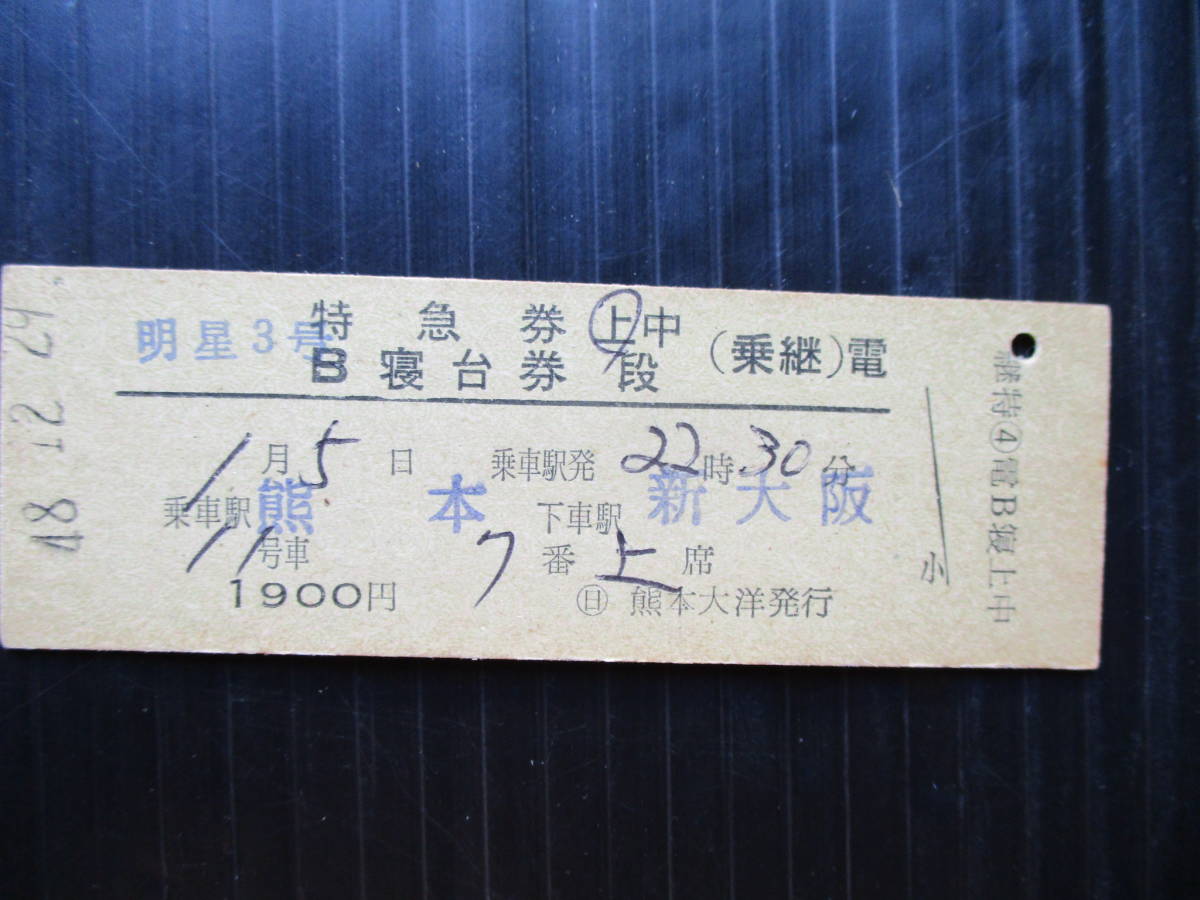 48.12.29
明星3号
特急券 上中
B寝台券 段 (乗継)電
1月5日 乗車駅発 22時30分
乗車駅 熊本 下車駅 新大阪
11号車 7番上席
1900円 ㊐ 熊本大洋発行
小
継特④電B寝上中